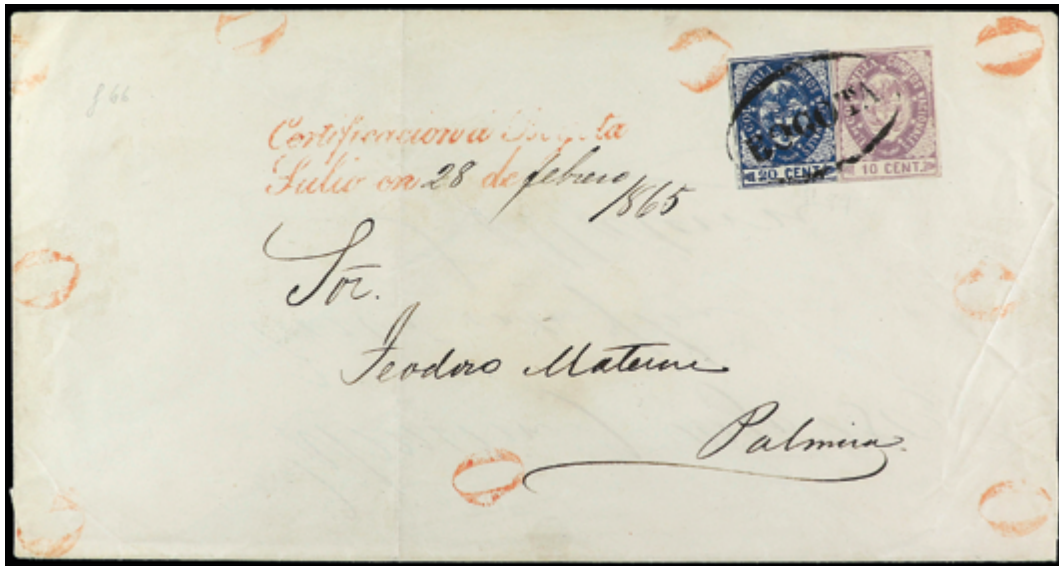 g 66
Certificacion a Bogota
Salio en 28 de febrero
1865
BOGOTA
20 CENT.
CORREOS NACIONALES
10 CENT.
Sor.
Teodoro Materon
Palmira.